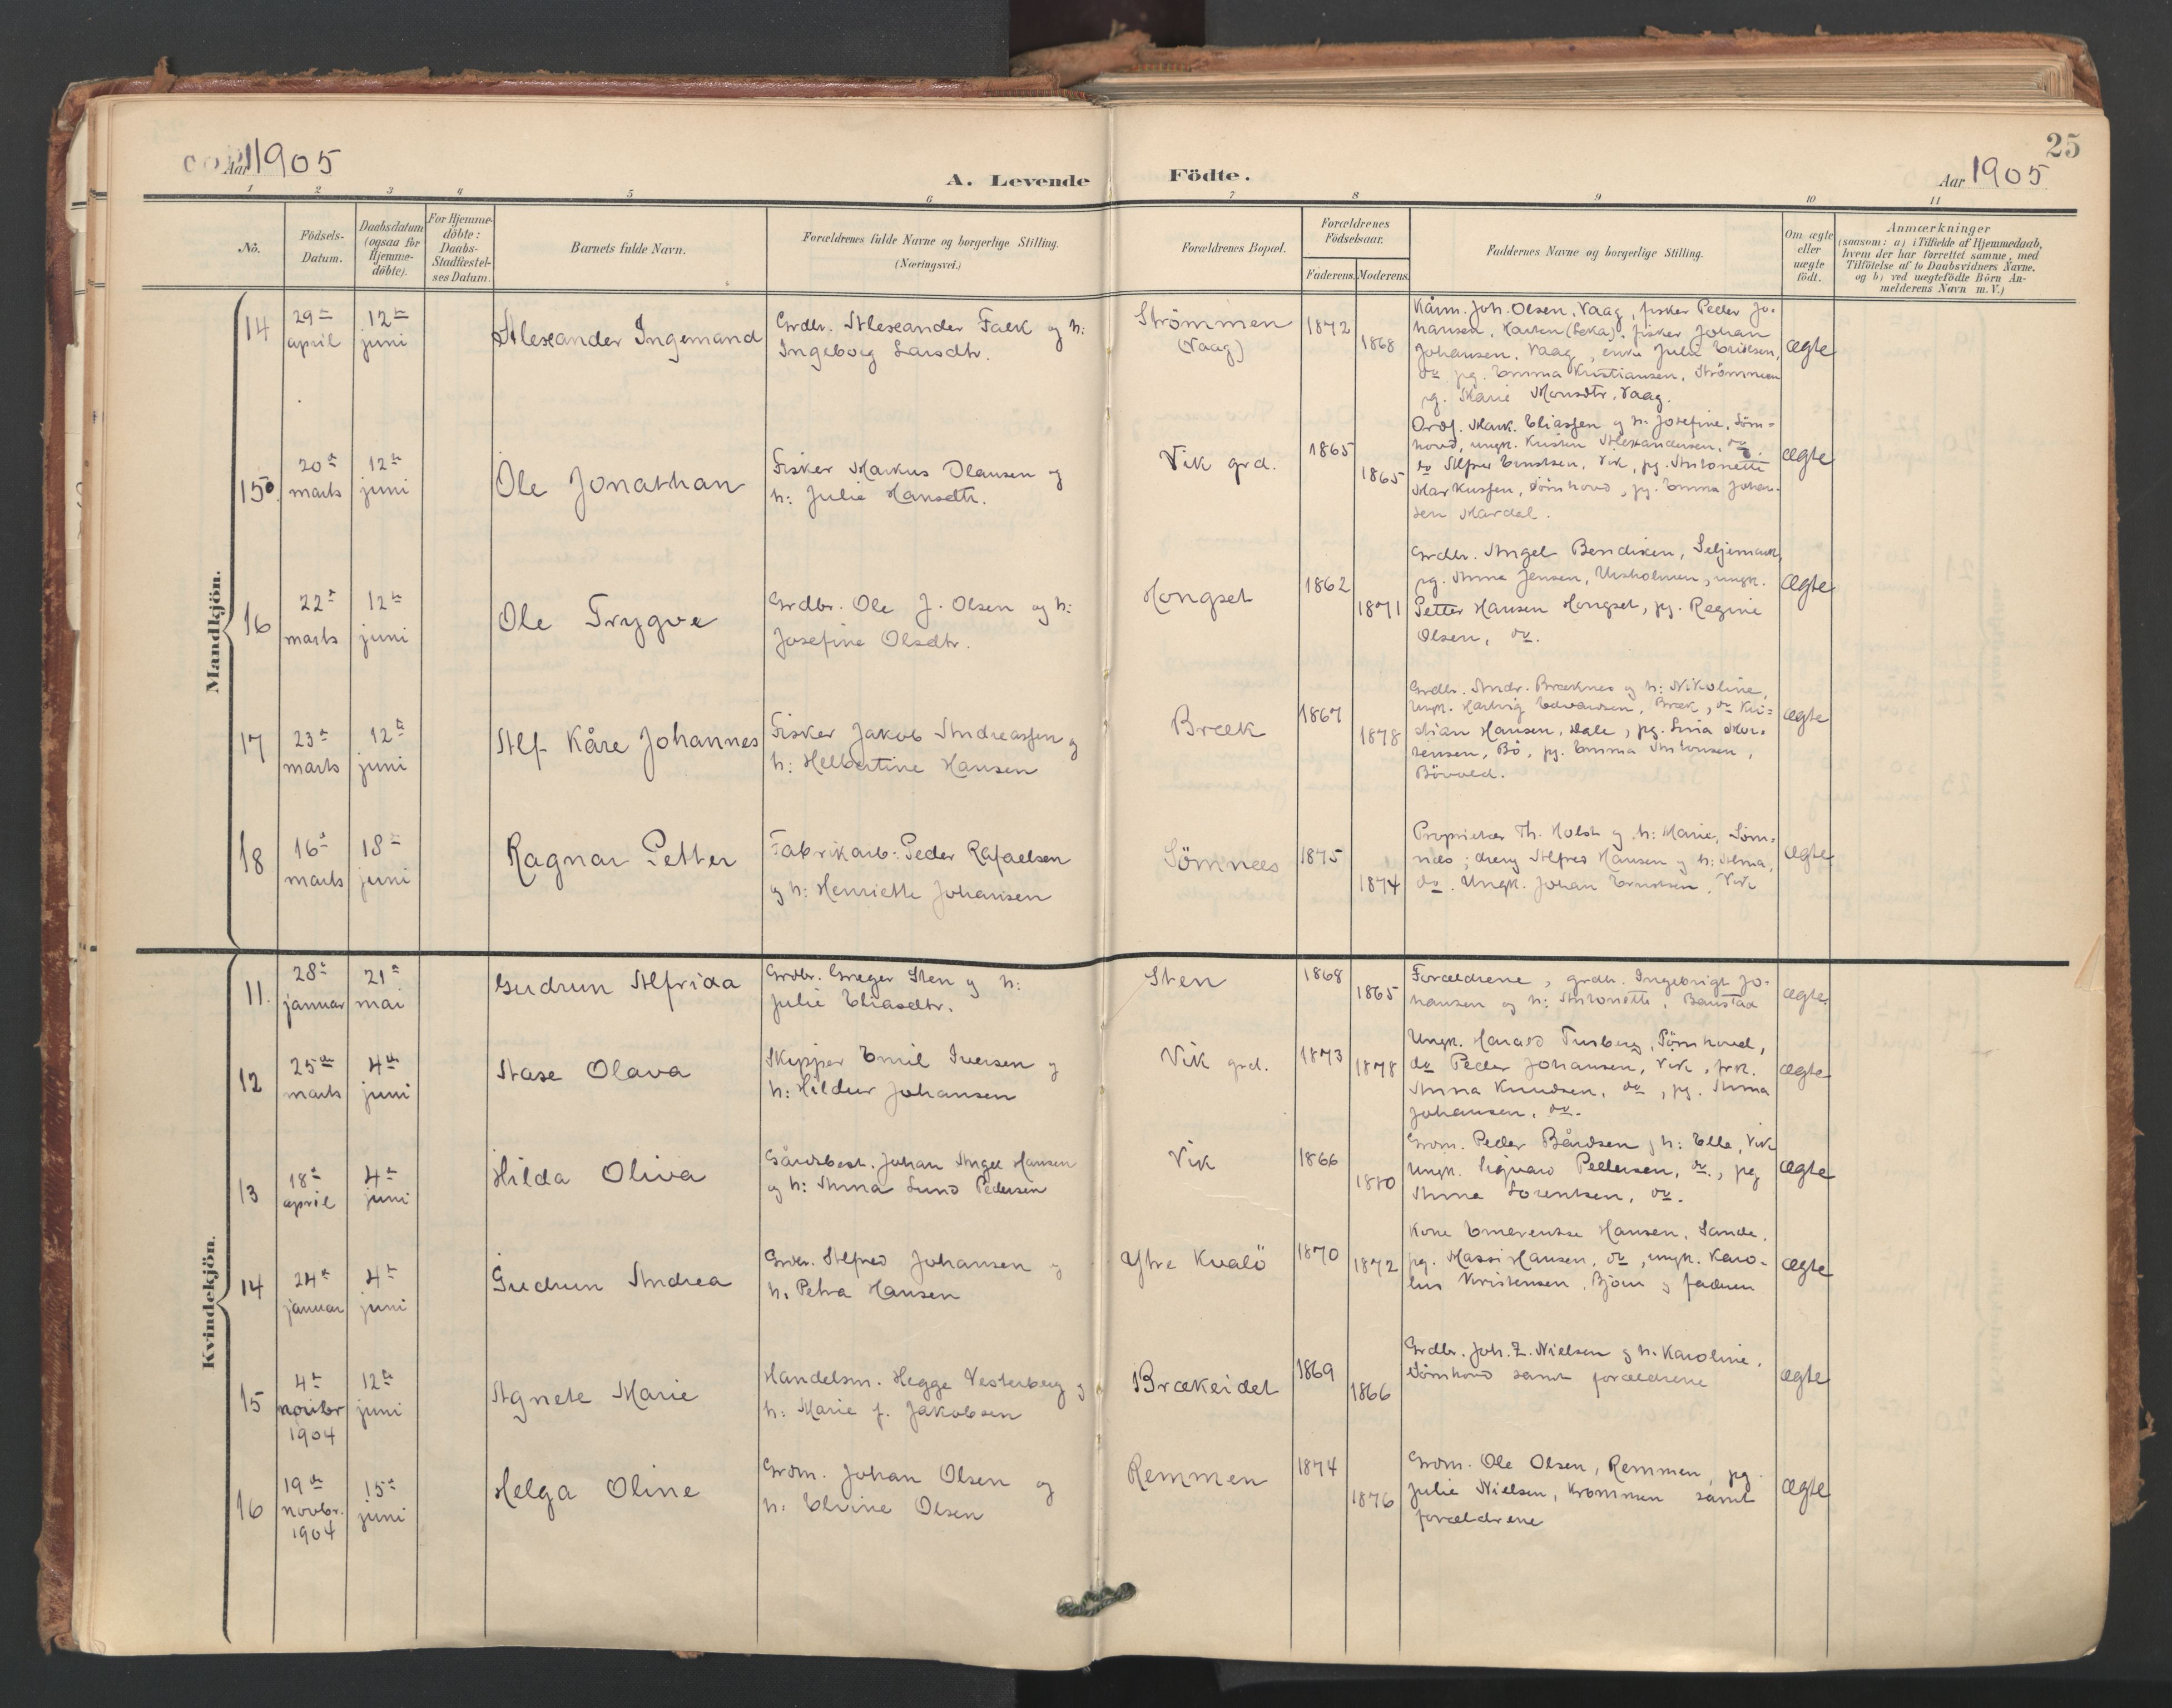 25
Aar 1905
A. Levende Födte.
Aar 1905
1 2 3 4 5 6 7 8 9 10 11
No.
Födsels-Datum.
Daabsdatum (ogsaa for Hjemme-döbte).
For Hjemme-döbte: Daabs-Stadfæstel-ses Datum.
Barnets fulde Navn.
Forældrenes fulde Navne og borgerlige Stilling.
(Næringsvei.)
Forældrenes Bopæl.
Forældrenes Födselsaar.
Faderens. Moderens.
Faddernes Navne og borgerlige Stilling.
Om ægte eller uægte födt.
Anmærkninger
(saasom: a) i Tilfælde af Hjemmedaab,
hvem der har forrettet samme, med
Tilföielse af to Daabsvidners Navne,
og b) ved uægtefödte Börn An-
melderens Navn m. V.)
Mandkjön.
14
29de april
12te juni
Alexander Ingemand
Grdbr. Alexander Falk og h:
Ingeborg Larsdtr.
Strömmen
(Vaag)
1872
1868
Kårm. Joh. Olsen, Vaag, fisker Peder Jo-
hansen, (Leka), fisker Johan
Johansen, Vaag, enke Julie Eriksen,
do pg. Emma Kristiansen, Strömmen
pg. Marie Monsdtr, Vaag.
ægte
15
20de marts
12te juni
Ole Jonathan
Fisker Markus Olausen og
h: Julie Hansdtr.
Vik grd.
1865
1865
Ordf. Mark. Eliassen og h. Josefine, Söm-
hovd, ungk. Kristen Alexandersen, do
do Alfred Knudsen, Vik, pg. Antonette
Markussen, Sömhovd, pg. Emma Johan-
sen Mardal.
ægte
16
22de marts
12te juni
Ole Trygve
Grdbr. Ole J. Olsen og h:
Josefine Olsdtr.
Hongset
1862
1871
Grdbr. Angel Bendiksen, Seljemark,
pg. Anna Jensen, Urxholmen, ungk.
Petter Hansen Hongset, pg. Regine
Olsen, do.
ægte
17
23de marts
12te juni
Alf Kåre Johannes
Fisker Jakob Andreassen og
h: Helbertine Hansen
Bræk
1867
1878
Grdbr. Andr. Bræknes og h: Nikoline,
Ungk. Hartvig Edvardsen, Bræk, do Kri-
stian Hansen, Dale, pg. Lina Mor-
tensen, Bö, pg. Emma Antonsen,
Bövold.
ægte
18
16de marts
18de juni
Ragnar Petter
Fabrikarb: Peder Rafaelsen
og h: Henriette Johansen
Sömnæs
1875
1874
Proprietær Th. Holst og h: Marie, Söm-
næs; dreng Alfred Hansen og h: Alma,
do. Ungk. Johan Knudsen, Vik
ægte
Kvindekjön.
11.
28de januar
21de mai
Gudrun Alfrida
Grdbr. Greger Sten og h:
Julie Eliasdtr.
Sten
1868
1865
Forældrene, grdbr. Ingebrigt Jo-
hansen og h: Antonette, Baustad
ægte.
12
25de marts
4de juni
Aase Olava
Skipper Emil Iversen og
h: Hildur Johansen
Vik grd.
1873
1878
Ungk. Harald Tusberg, Sömhovd,
do Peder Johansen, Vik, frk.
Anna Knudsen, do, pg. Anna
Johansen, do.
ægte
13
18de april
4de juni
Hilda Oliva
Gårdbest. Johan Angel Hansen
og h: Anna Lund Pedersen
Vik
1866
1880
Grdm. Peder Bårdsen, h: Elle, Vik
Ungk. Sigvard Pettersen, do., pg
Anna Sorentsen, do.
ægte
14
24de januar
4de juni
Gudrun Andrea
Grdbr. Alfred Johansen og
h. Petra Hansen
Ytre Kvalö
1870
1872
Kone Emerentse Hansen, Sande,
pg. Massi Hansen, do, ungk. Karo-
lius Kristensen, Björn og faderen
ægte
15
4de novbr 1904
12te juni
Agnete Marie
Handelsm. Hegge Vesterberg og
h: Marie f. Jakobsen
Brækeidet
1869
1866
Grdbr. Joh. Z. Nielsen og h. Karoline,
Sömhovd samt forældrene
ægte
16
19de novbr. 1904
15de juni
Helga Oline
Grdm. Johan Olsen og
h: Elvine Olsen
Remmen
1874
1876
Grdm. Ole Olsen, Remmen, pg.
Julie Nielsen, Krommen samt
forældrene
ægte